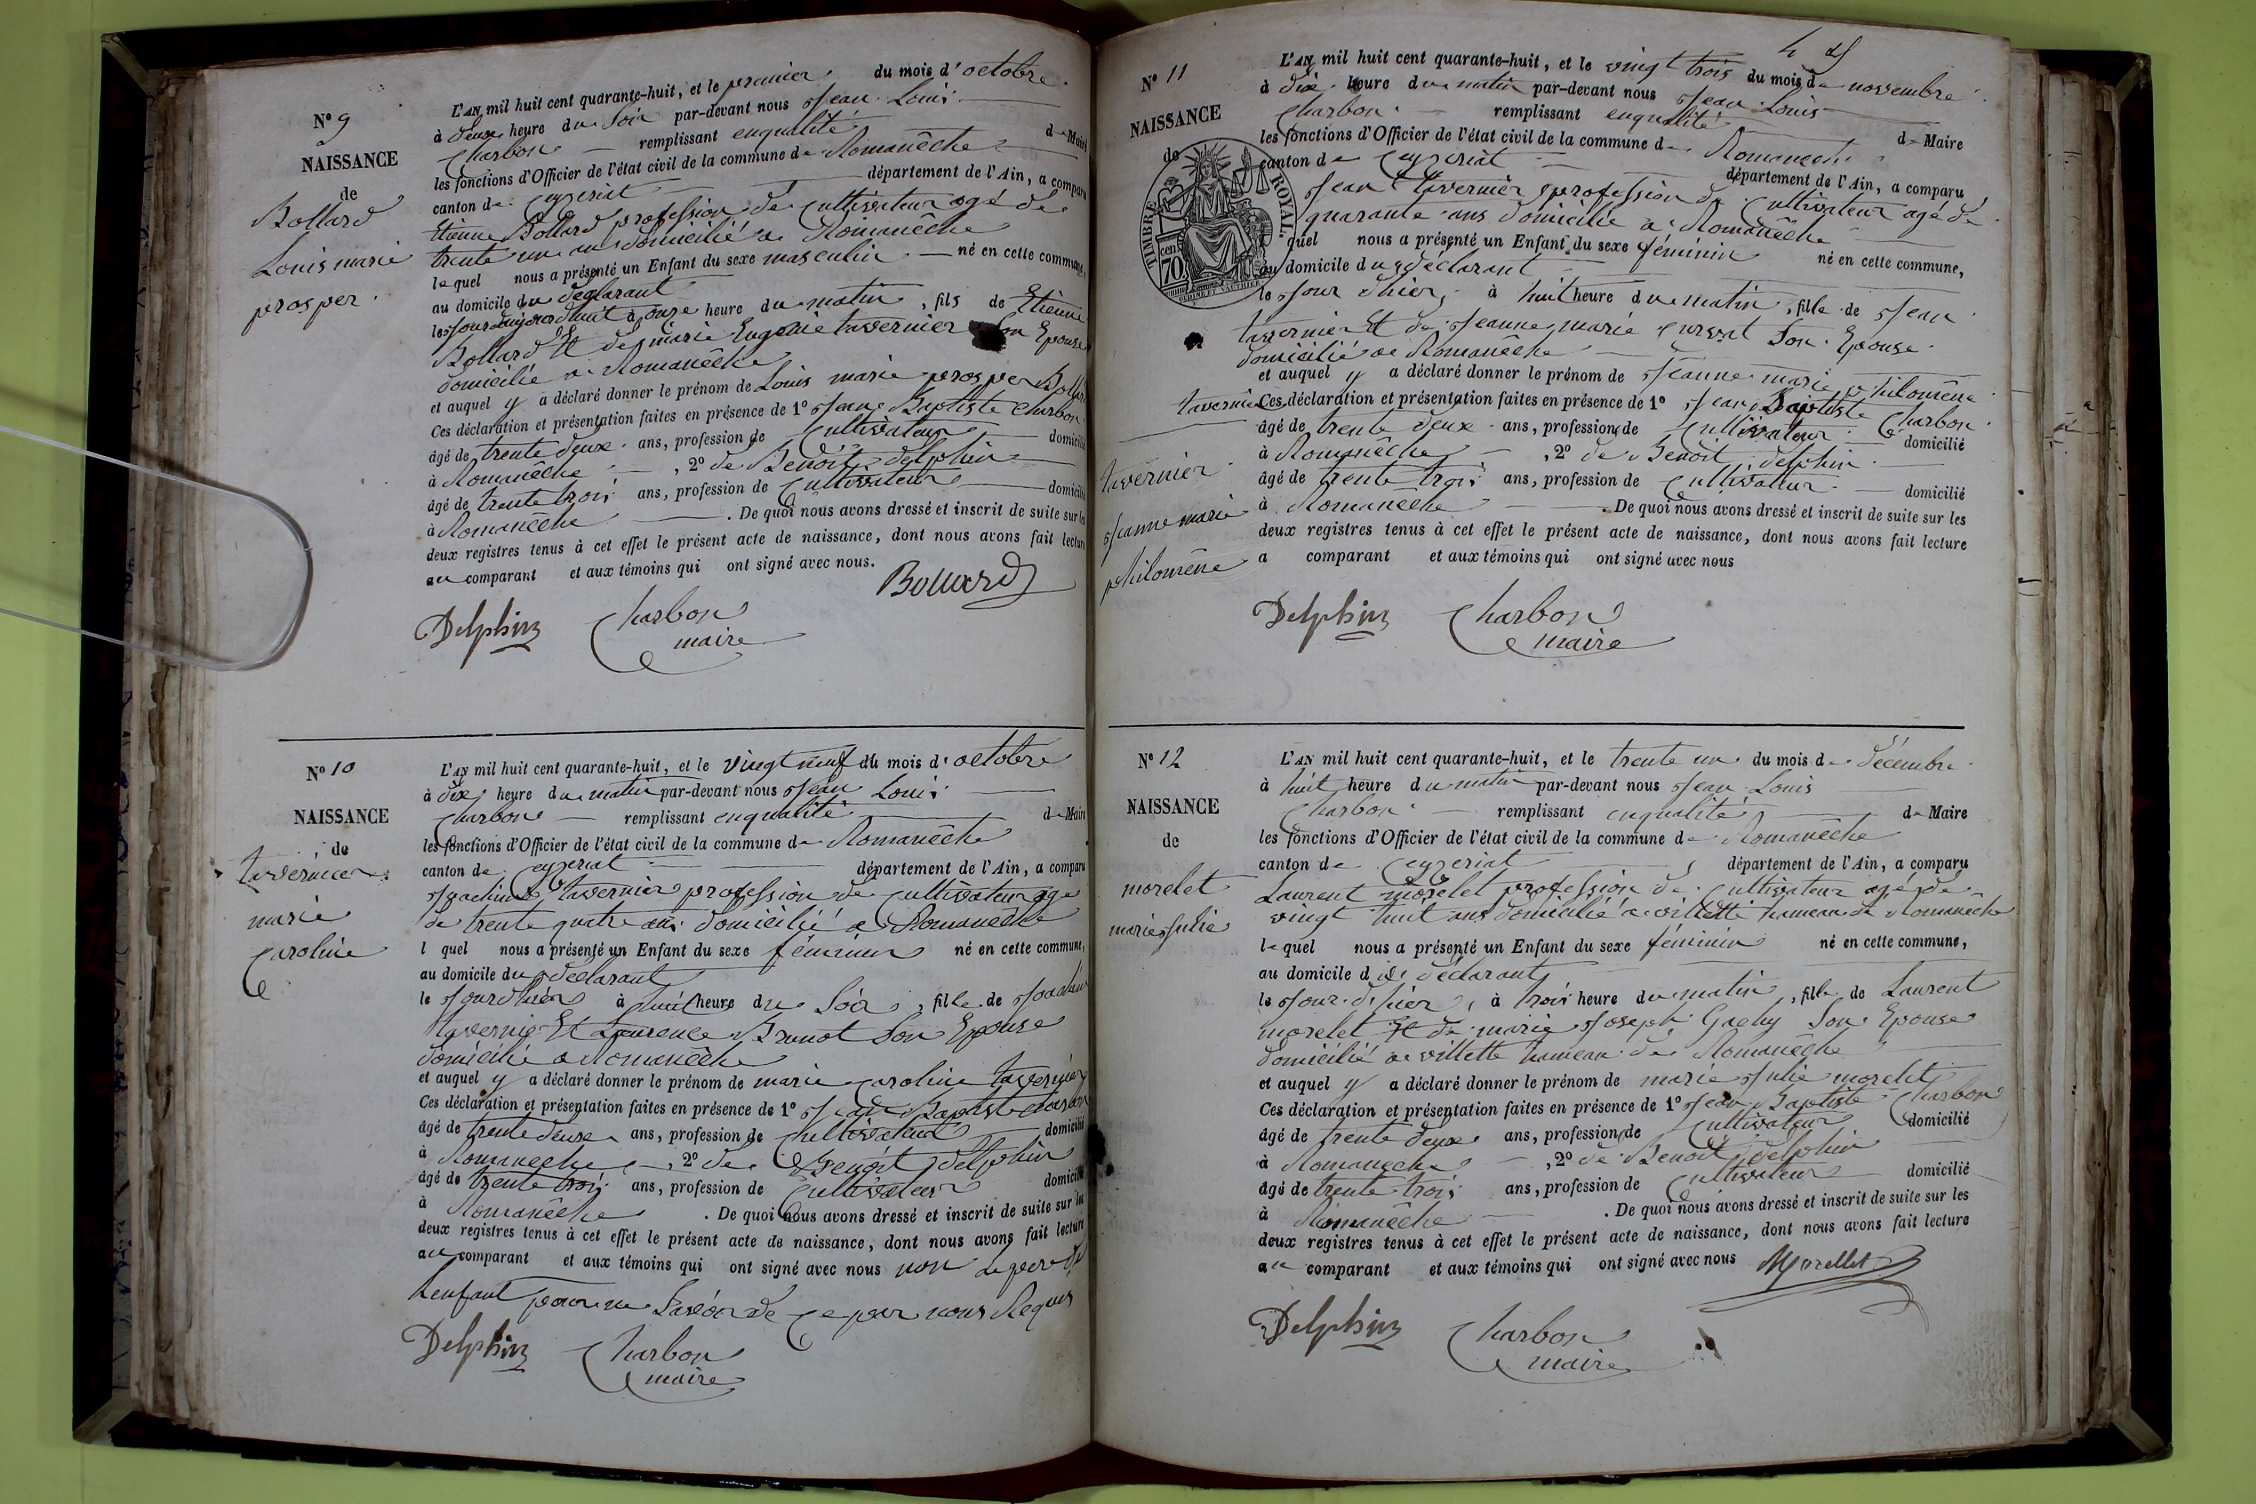 N° 9
NAISSANCE
de
Bollard
Louis marie
prosper.
L'AN mil huit cent quarante-huit, et le premier du mois d'octobre
à deux heure du Soir par-devant nous Jean Louis
Charbon remplissant en qualité de Maire
les fonctions d'Officier de l'état civil de la commune de Romanêche
canton de Ceyzeriat département de l'Ain, a comparu
Etienne Bollard profession de Cultivateur agé de
trente un an domicilié a Romanêche
lequel nous a présenté un Enfant du sexe masculin né en cette commune,
au domicile du déclarant
le Jour aujourdhuit à onze heure du matin, fils de Etienne
Bollard Et de marie Eugenie tavernier Son Epouse
domicilié a Romanêche
et auquel y a déclaré donner le prénom de Louis marie prosper Bollard
Ces déclaration et présentation faites en présence de 1° Jean Baptiste Charbon
âgé de trente deux ans, profession de Cultivateur domicilié
à Romanêche, 2° de Benoit delphin
âgé de trente trois ans, profession de Cultivateur domicilié
à Romanêche. De quoi nous avons dressé et inscrit de suite sur les
deux registres tenus à cet effet le présent acte de naissance, dont nous avons fait lecture
au comparant et aux témoins qui ont signé avec nous.
Bollard
Delphin Charbon
maire
N° 10
NAISSANCE
de
tavernier
marie
Caroline
L'AN mil huit cent quarante-huit, et le vingt neuf du mois d'octobre
à dix heure du matin par-devant nous Jean Louis
Charbon remplissant en qualité de Maire
les fonctions d'Officier de l'état civil de la commune de Romanêche
canton de Ceyzeriat département de l'Ain, a comparu
Joachim tavernier profession de Cultivateur age
de trente quatre ans domicilié a Romanêche
l quel nous a présenté un Enfant du sexe féminin né en cette commune,
au domicile du declarant
le Jour dhier à huit heure du Soir, fille de Joachim
tavernier Et Laurence Brunot Son Epouse
domicilié a Romanêche
et auquel y a déclaré donner le prénom de marie Caroline tavernier
Ces déclaration et présentation faites en présence de 1° Jean Baptiste charbon
âgé de trente deux ans, profession de Cultivateur domicilié
à Romanêche, 2° de Benoit delphin
âgé de trente trois ans, profession de Cultivateur domicilié
à Romanêche. De quoi nous avons dressé et inscrit de suite sur les
deux registres tenus à cet effet le présent acte de naissance, dont nous avons fait lecture
au comparant et aux témoins qui ont signé avec nous non le pere de
Lenfant pour ne Savoir de ce par nous Requis
Delphin Charbon
maire
N° 11
NAISSANCE
de
TIMBRE ROYAL
70 cen
tavernier
tavernier
Jeanne marie
philomêne
L'AN mil huit cent quarante-huit, et le vingt trois du mois de novembre
à dix heure du matin par-devant nous Jean Louis
Charbon remplissant en qualité de Maire
les fonctions d'Officier de l'état civil de la commune de Romanêche
canton de Ceyzeriat département de l'Ain, a comparu
Jean tavernier profession de Cultivateur agé de
quarante ans domicilié a Romanêche
quel nous a présenté un Enfant du sexe féminin né en cette commune,
au domicile du déclarant
le Jour dhier, à huit heure du matin, fille de Jean
tavernier Et de Jeanne marie Son Epouse
domicilié a Romanêche
et auquel y a déclaré donner le prénom de Jeanne marie philomêne
Ces déclaration et présentation faites en présence de 1° Jean Baptiste Charbon
âgé de trente deux ans, profession de Cultivateur domicilié
à Romanêche, 2° de Benoit delphin
âgé de trente trois ans, profession de Cultivateur domicilié
à Romanêche. De quoi nous avons dressé et inscrit de suite sur les
deux registres tenus à cet effet le présent acte de naissance, dont nous avons fait lecture
a comparant et aux témoins qui ont signé avec nous
Delphin Charbon
maire
N° 12
NAISSANCE
de
morelet
marie Julie
L'AN mil huit cent quarante-huit, et le trente un du mois de décembre
à huit heure du matin par-devant nous Jean Louis
Charbon remplissant en qualité de Maire
les fonctions d'Officier de l'état civil de la commune de Romanêche
canton de Ceyzeriat, département de l'Ain, a comparu
Laurent morelet profession de Cultivateur agé de
vingt huit ans domicilié a villette hameau de Romanêche
lequel nous a présenté un Enfant du sexe féminin né en cette commune,
au domicile du déclarant
le Jour d'hier, à trois heure du matin, fille de Laurent
morelet Et de marie Joseph Son Epouse
domicilié a villette hameau de Romanêche
et auquel y a déclaré donner le prénom de marie Julie morelet
Ces déclaration et présentation faites en présence de 1° Jean Baptiste Charbon
âgé de trente deux ans, profession de Cultivateur domicilié
à Romanêche, 2° de Benoit delphin
âgé de trente trois ans, profession de Cultivateur domicilié
à Romanêche. De quoi nous avons dressé et inscrit de suite sur les
deux registres tenus à cet effet le présent acte de naissance, dont nous avons fait lecture
au comparant et aux témoins qui ont signé avec nous Morellet
Delphin Charbon
maire